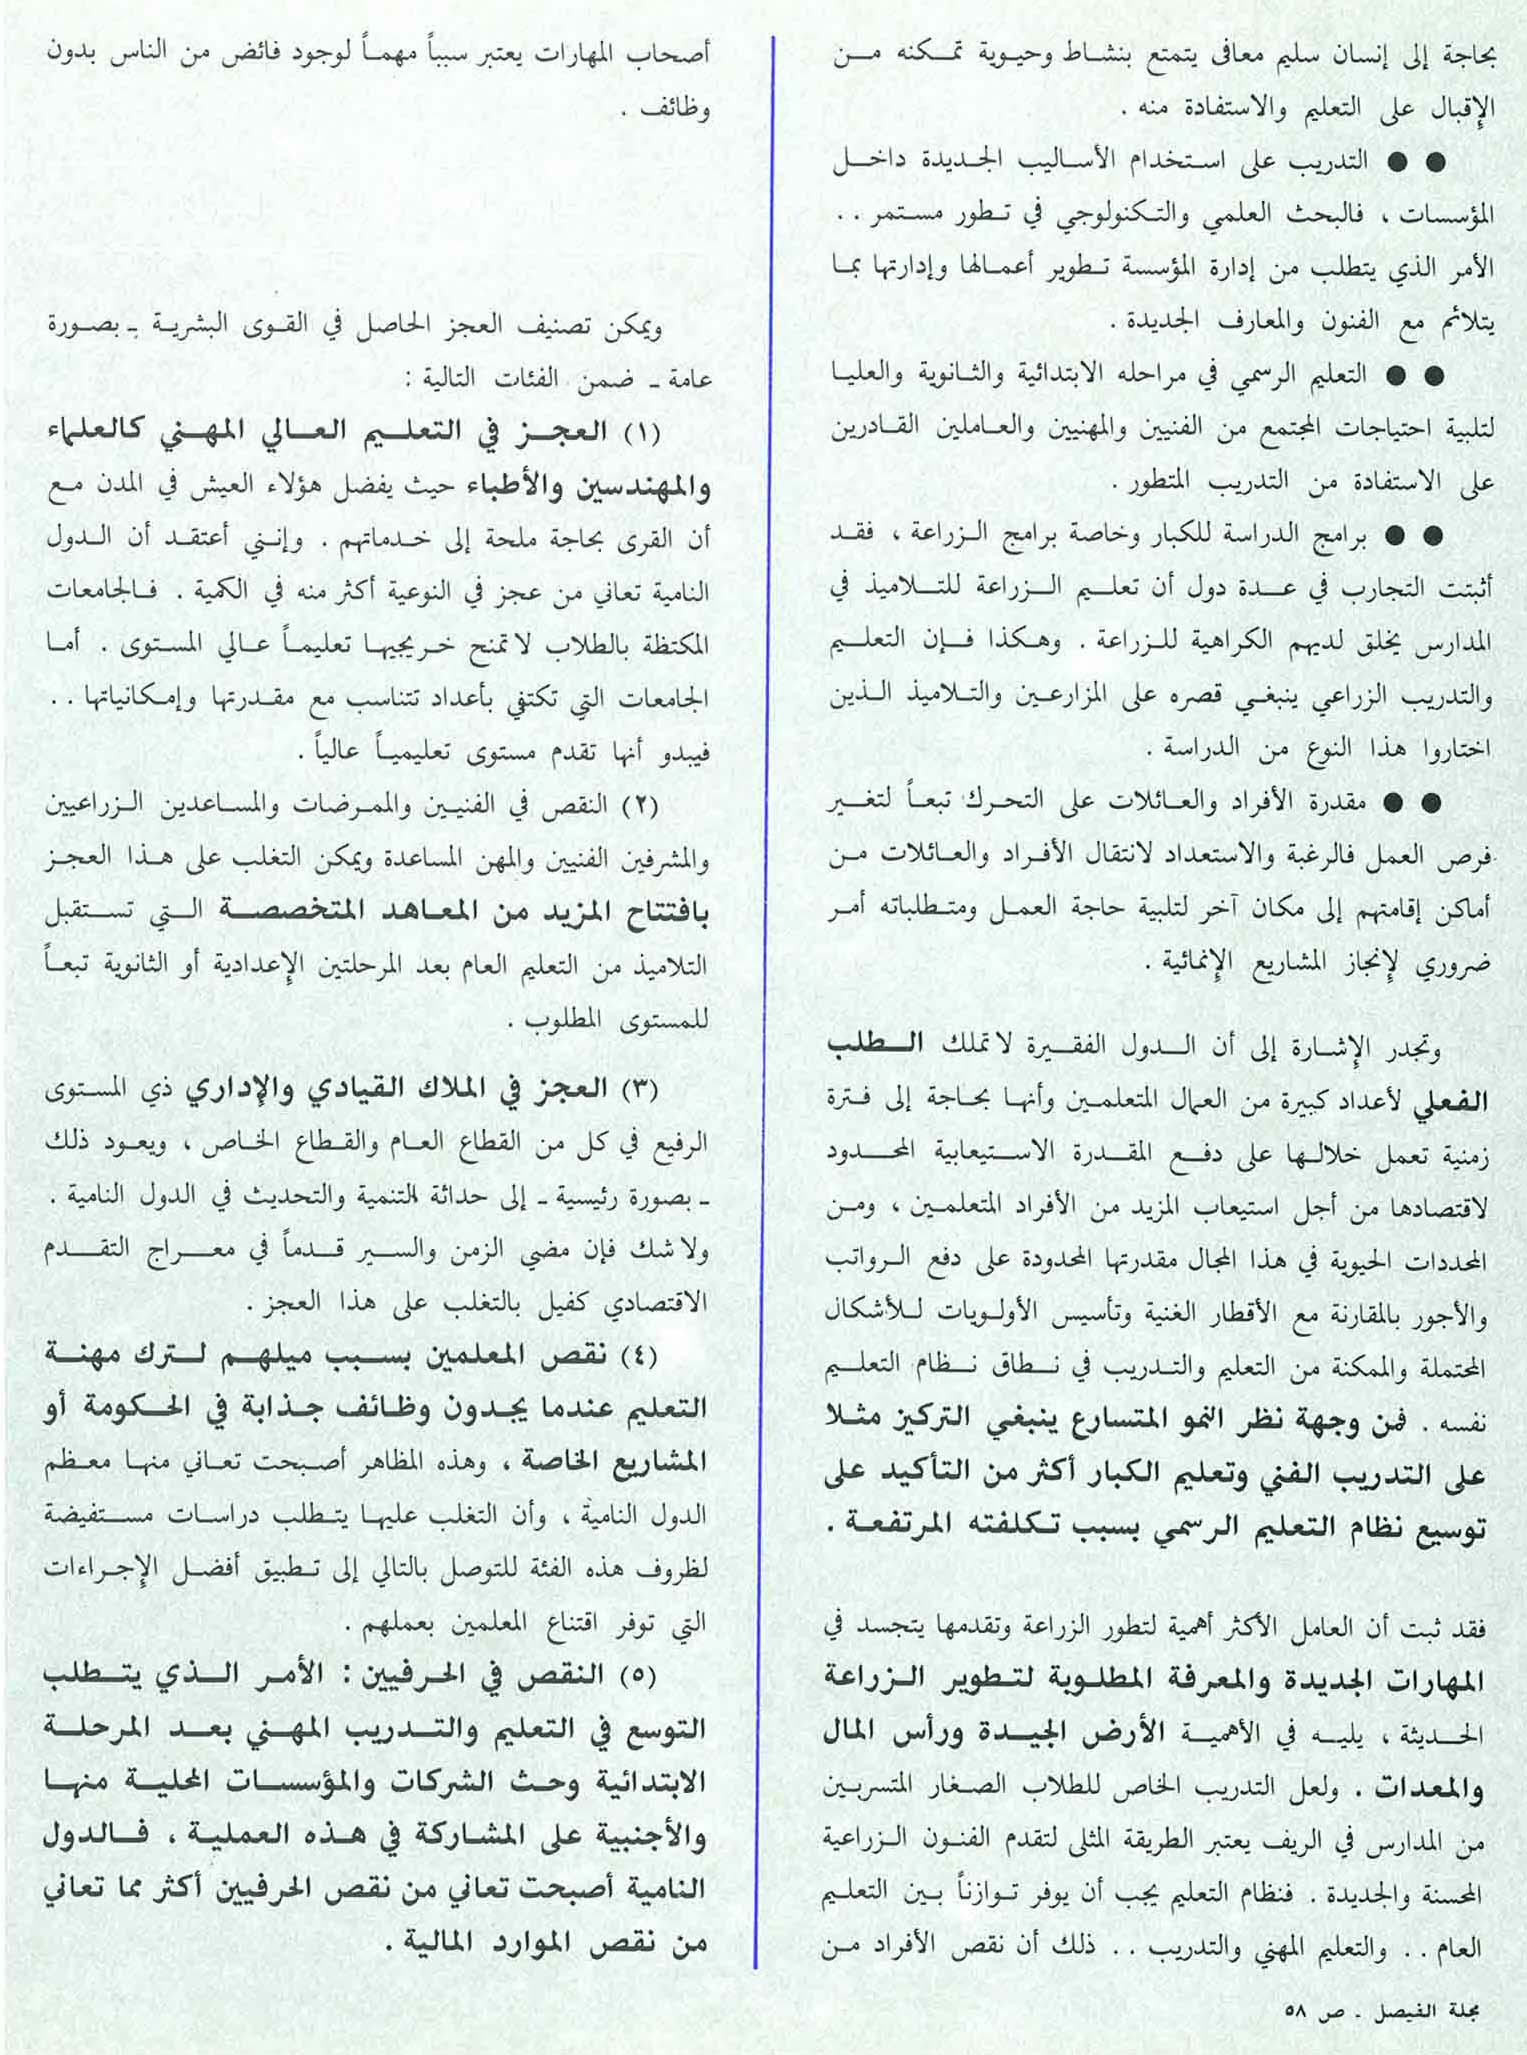 بحاجة إلى إنسان سليم معافى يتمتع بنشاط وحيوية تمكنه من
الإقبال على التعليم والاستفادة منه .
●● التدريب على استخدام الأساليب الجديدة داخل
المؤسسات ، فالبحث العلمي والتكنولوجي في تطور مستمر . .
الأمر الذي يتطلب من إدارة المؤسسة تطوير أعمالها وإدارتها بما
يتلائم مع الفنون والمعارف الجديدة .
●● التعليم الرسمي في مراحله الابتدائية والثانوية والعليا
لتلبية احتياجات المجتمع من الفنيين والمهنيين والعاملين القادرين
على الاستفادة من التدريب المتطور .
●● برامج الدراسة للكبار وخاصة برامج الزراعة ، فقد
أثبتت التجارب في عدة دول أن تعليم الزراعة للتلاميذ في
المدارس يخلق لديهم الكراهية للزراعة . وهكذا فإن التعليم
والتدريب الزراعي ينبغي قصره على المزارعين والتلاميذ الذين
اختاروا هذا النوع من الدراسة .
●● مقدرة الأفراد والعائلات على التحرك تبعاً لتغير
فرص العمل فالرغبة والاستعداد لانتقال الأفراد والعائلات من
أماكن إقامتهم إلى مكان آخر لتلبية حاجة العمل ومتطلباته أمر
ضروري لإنجاز المشاريع الإنمائية .
وتجدر الإشارة إلى أن الدول الفقيرة لا تملك الطلب
الفعلي لأعداد كبيرة من العمال المتعلمين وأنها بحاجة إلى فترة
زمنية تعمل خلالها على دفع المقدرة الاستيعابية المحدود
لاقتصادها من أجل استيعاب المزيد من الأفراد المتعلمين ، ومن
المحددات الحيوية في هذا المجال مقدرتها المحدودة على دفع الرواتب
والأجور بالمقارنة مع الأقطار الغنية وتأسيس الأولويات للأشكال
المحتملة والممكنة من التعليم والتدريب في نطاق نظام التعليم
نفسه . فمن وجهة نظر النمو المتسارع ينبغي التركيز مثلا
على التدريب الفني وتعليم الكبار أكثر من التأكيد على
توسيع نظام التعليم الرسمي بسبب تكلفته المرتفعة .
فقد ثبت أن العامل الأكثر أهمية لتطور الزراعة وتقدمها يتجسد في
المهارات الجديدة والمعرفة المطلوبة لتطوير الزراعة
الحديثة ، يليه في الأهمية الأرض الجيدة ورأس المال
والمعدات . ولعل التدريب الخاص للطلاب الصغار المتسربين
من المدارس في الريف يعتبر الطريقة المثلى لتقدم الفنون الزراعية
المحسنة والجديدة . فنظام التعليم يجب أن يوفر توازناً بين التعليم
العام . . والتعليم المهني والتدريب . . ذلك أن نقص الأفراد من
أصحاب المهارات يعتبر سبباً مهماً لوجود فائض من الناس بدون
وظائف .
ويمكن تصنيف العجز الحاصل في القوى البشرية ـ بصورة
عامة ـ ضمن الفئات التالية :
(١) العجز في التعليم العالي المهني كالعلماء
والمهندسين والأطباء حيث يفضل هؤلاء العيش في المدن مع
أن القرى بحاجة ملحة إلى خدماتهم . وإنني أعتقد أن الدول
النامية تعاني من عجز في النوعية أكثر منه في الكمية . فالجامعات
المكتظة بالطلاب لا تمنح خريجيها تعليماً عالي المستوى . أما
الجامعات التي تكتفي بأعداد تتناسب مع مقدرتها وإمكانياتها . .
فيبدو أنها تقدم مستوى تعليمياً عالياً .
(٢) النقص في الفنيين والممرضات والمساعدين الزراعيين
والمشرفين الفنيين والمهن المساعدة ويمكن التغلب على هذا العجز
بافتتاح المزيد من المعاهد المتخصصة التي تستقبل
التلاميذ من التعليم العام بعد المرحلتين الإعدادية أو الثانوية تبعاً
للمستوى المطلوب .
(٣) العجز في الملاك القيادي والإداري ذي المستوى
الرفيع في كل من القطاع العام والقطاع الخاص ، ويعود ذلك
ـ بصورة رئيسية ـ إلى حداثة التنمية والتحديث في الدول النامية .
ولا شك فإن مضي الزمن والسير قدماً في معراج التقدم
الاقتصادي كفيل بالتغلب على هذا العجز .
(٤) نقص المعلمين بسبب ميلهم لترك مهنة
التعليم عندما يجدون وظائف جذابة في الحكومة أو
المشاريع الخاصة ، وهذه المظاهر أصبحت تعاني منها معظم
الدول النامية ، وأن التغلب عليها يتطلب دراسات مستفيضة
لظروف هذه الفئة للتوصل بالتالي إلى تطبيق أفضل الإجراءات
التي توفر اقتناع المعلمين بعملهم .
(٥) النقص في الحرفيين : الأمر الذي يتطلب
التوسع في التعليم والتدريب المهني بعد المرحلة
الابتدائية وحث الشركات والمؤسسات المحلية منها
والأجنبية على المشاركة في هذه العملية ، فالدول
النامية أصبحت تعاني من نقص الحرفيين أكثر مما تعاني
من نقص الموارد المالية .
مجلة الفيصل ـ ص ٥٨